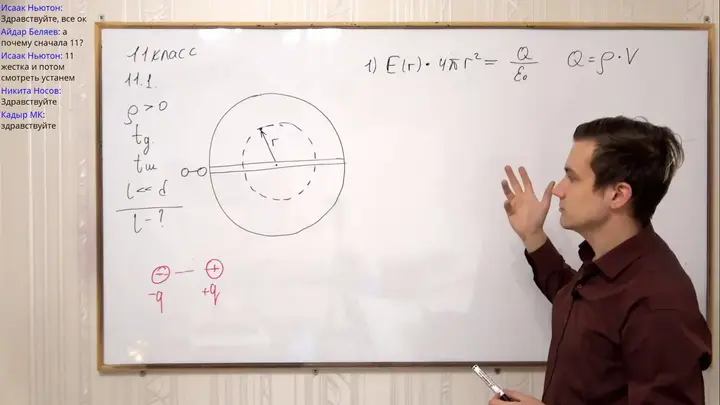 Исаак Ньютон:
Здравствуйте, все ок
Айдар Беляев: а
почему сначала 11?
Исаак Ньютон: 11
жестка и потом
смотреть устанем
Никита Носов:
Здравствуйте
Кадыр МК:
здравствуйте
11 класс
11.1.
ρ > 0
t_g.
t_ш
l << d
l - ?
r
⊖ — ⊕
-q +q
1) E(r) · 4πr² = Q/ε₀ Q = ρ · V